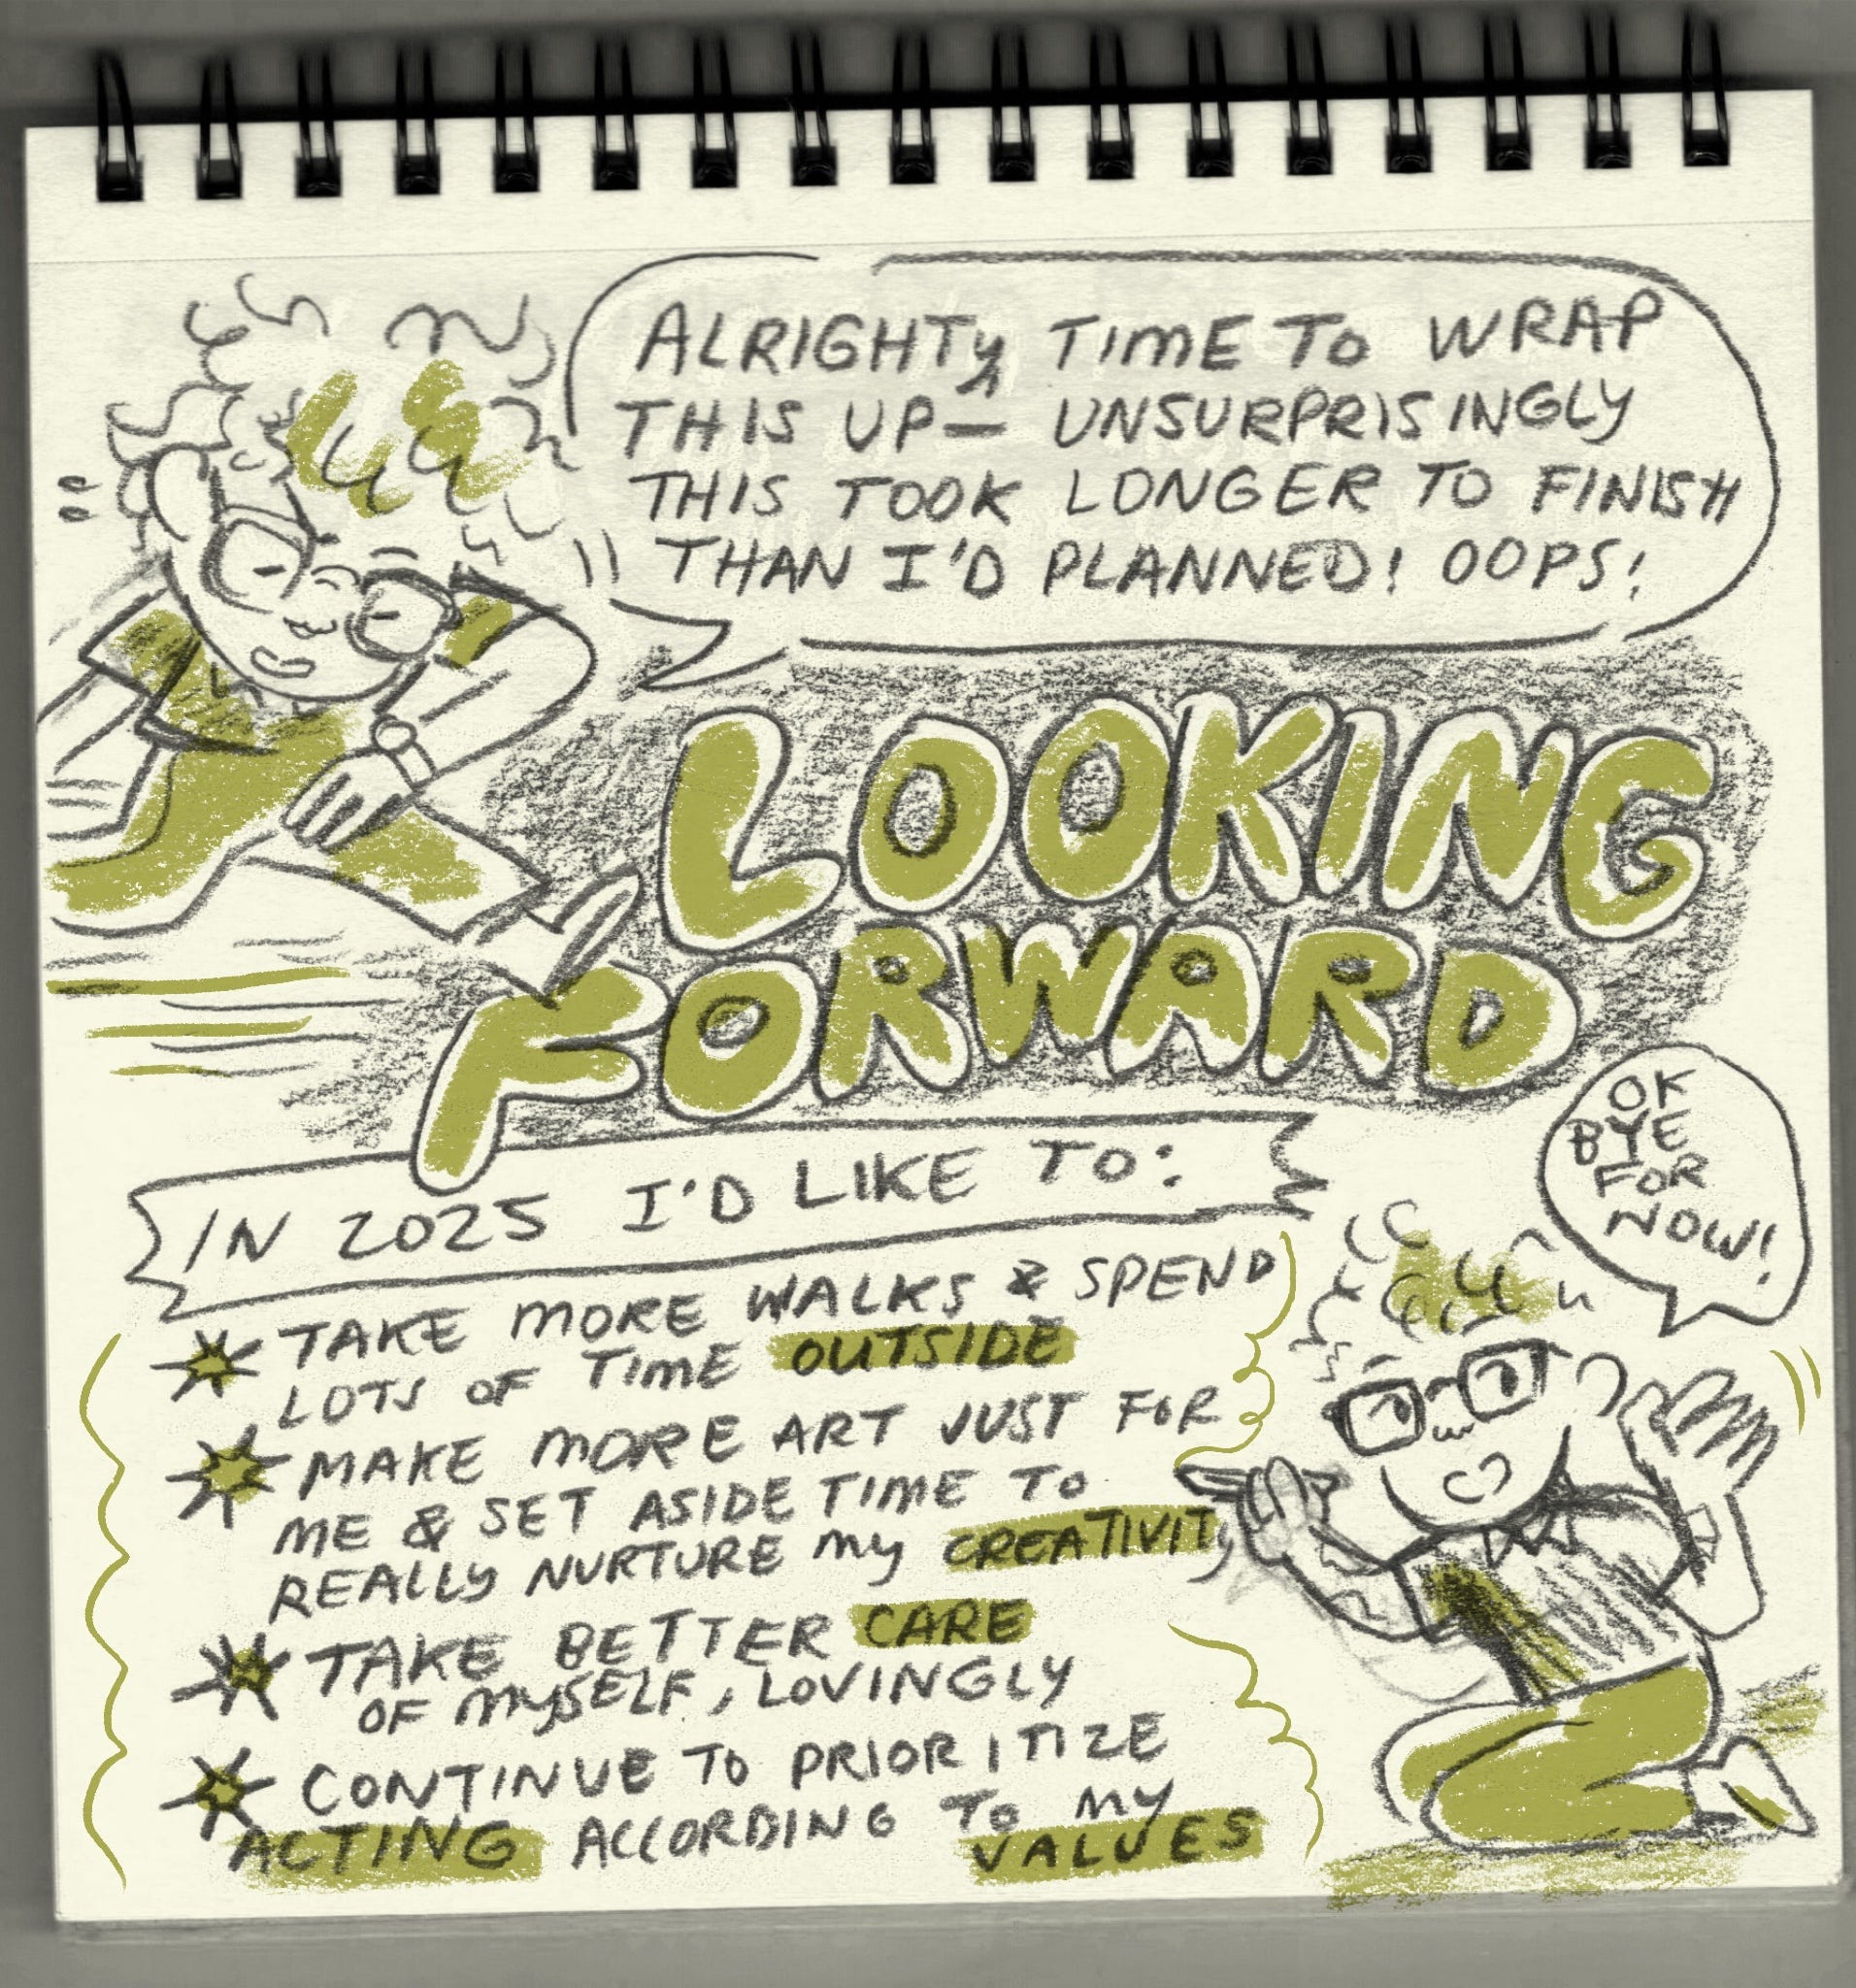 ALRIGHTY TIME TO WRAP
THIS UP— UNSURPRISINGLY
THIS TOOK LONGER TO FINISH
THAN I'D PLANNED! OOPS!
LOOKING
FORWARD
IN 2025 I'D LIKE TO:
TAKE MORE WALKS & SPEND
LOTS OF TIME OUTSIDE
MAKE MORE ART JUST FOR
ME & SET ASIDE TIME TO
REALLY NURTURE MY CREATIVITY
TAKE BETTER CARE
OF MYSELF, LOVINGLY
CONTINUE TO PRIORITIZE
ACTING ACCORDING TO MY
VALUES
OK
BYE
FOR
NOW!